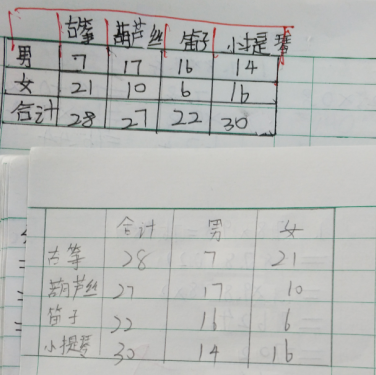 古筝 葫芦丝 笛子 小提琴
男 7 17 16 14
女 21 10 6 16
合计 28 27 22 30
合计 男 女
古筝 28 7 21
葫芦丝 27 17 10
笛子 22 16 6
小提琴 30 14 16